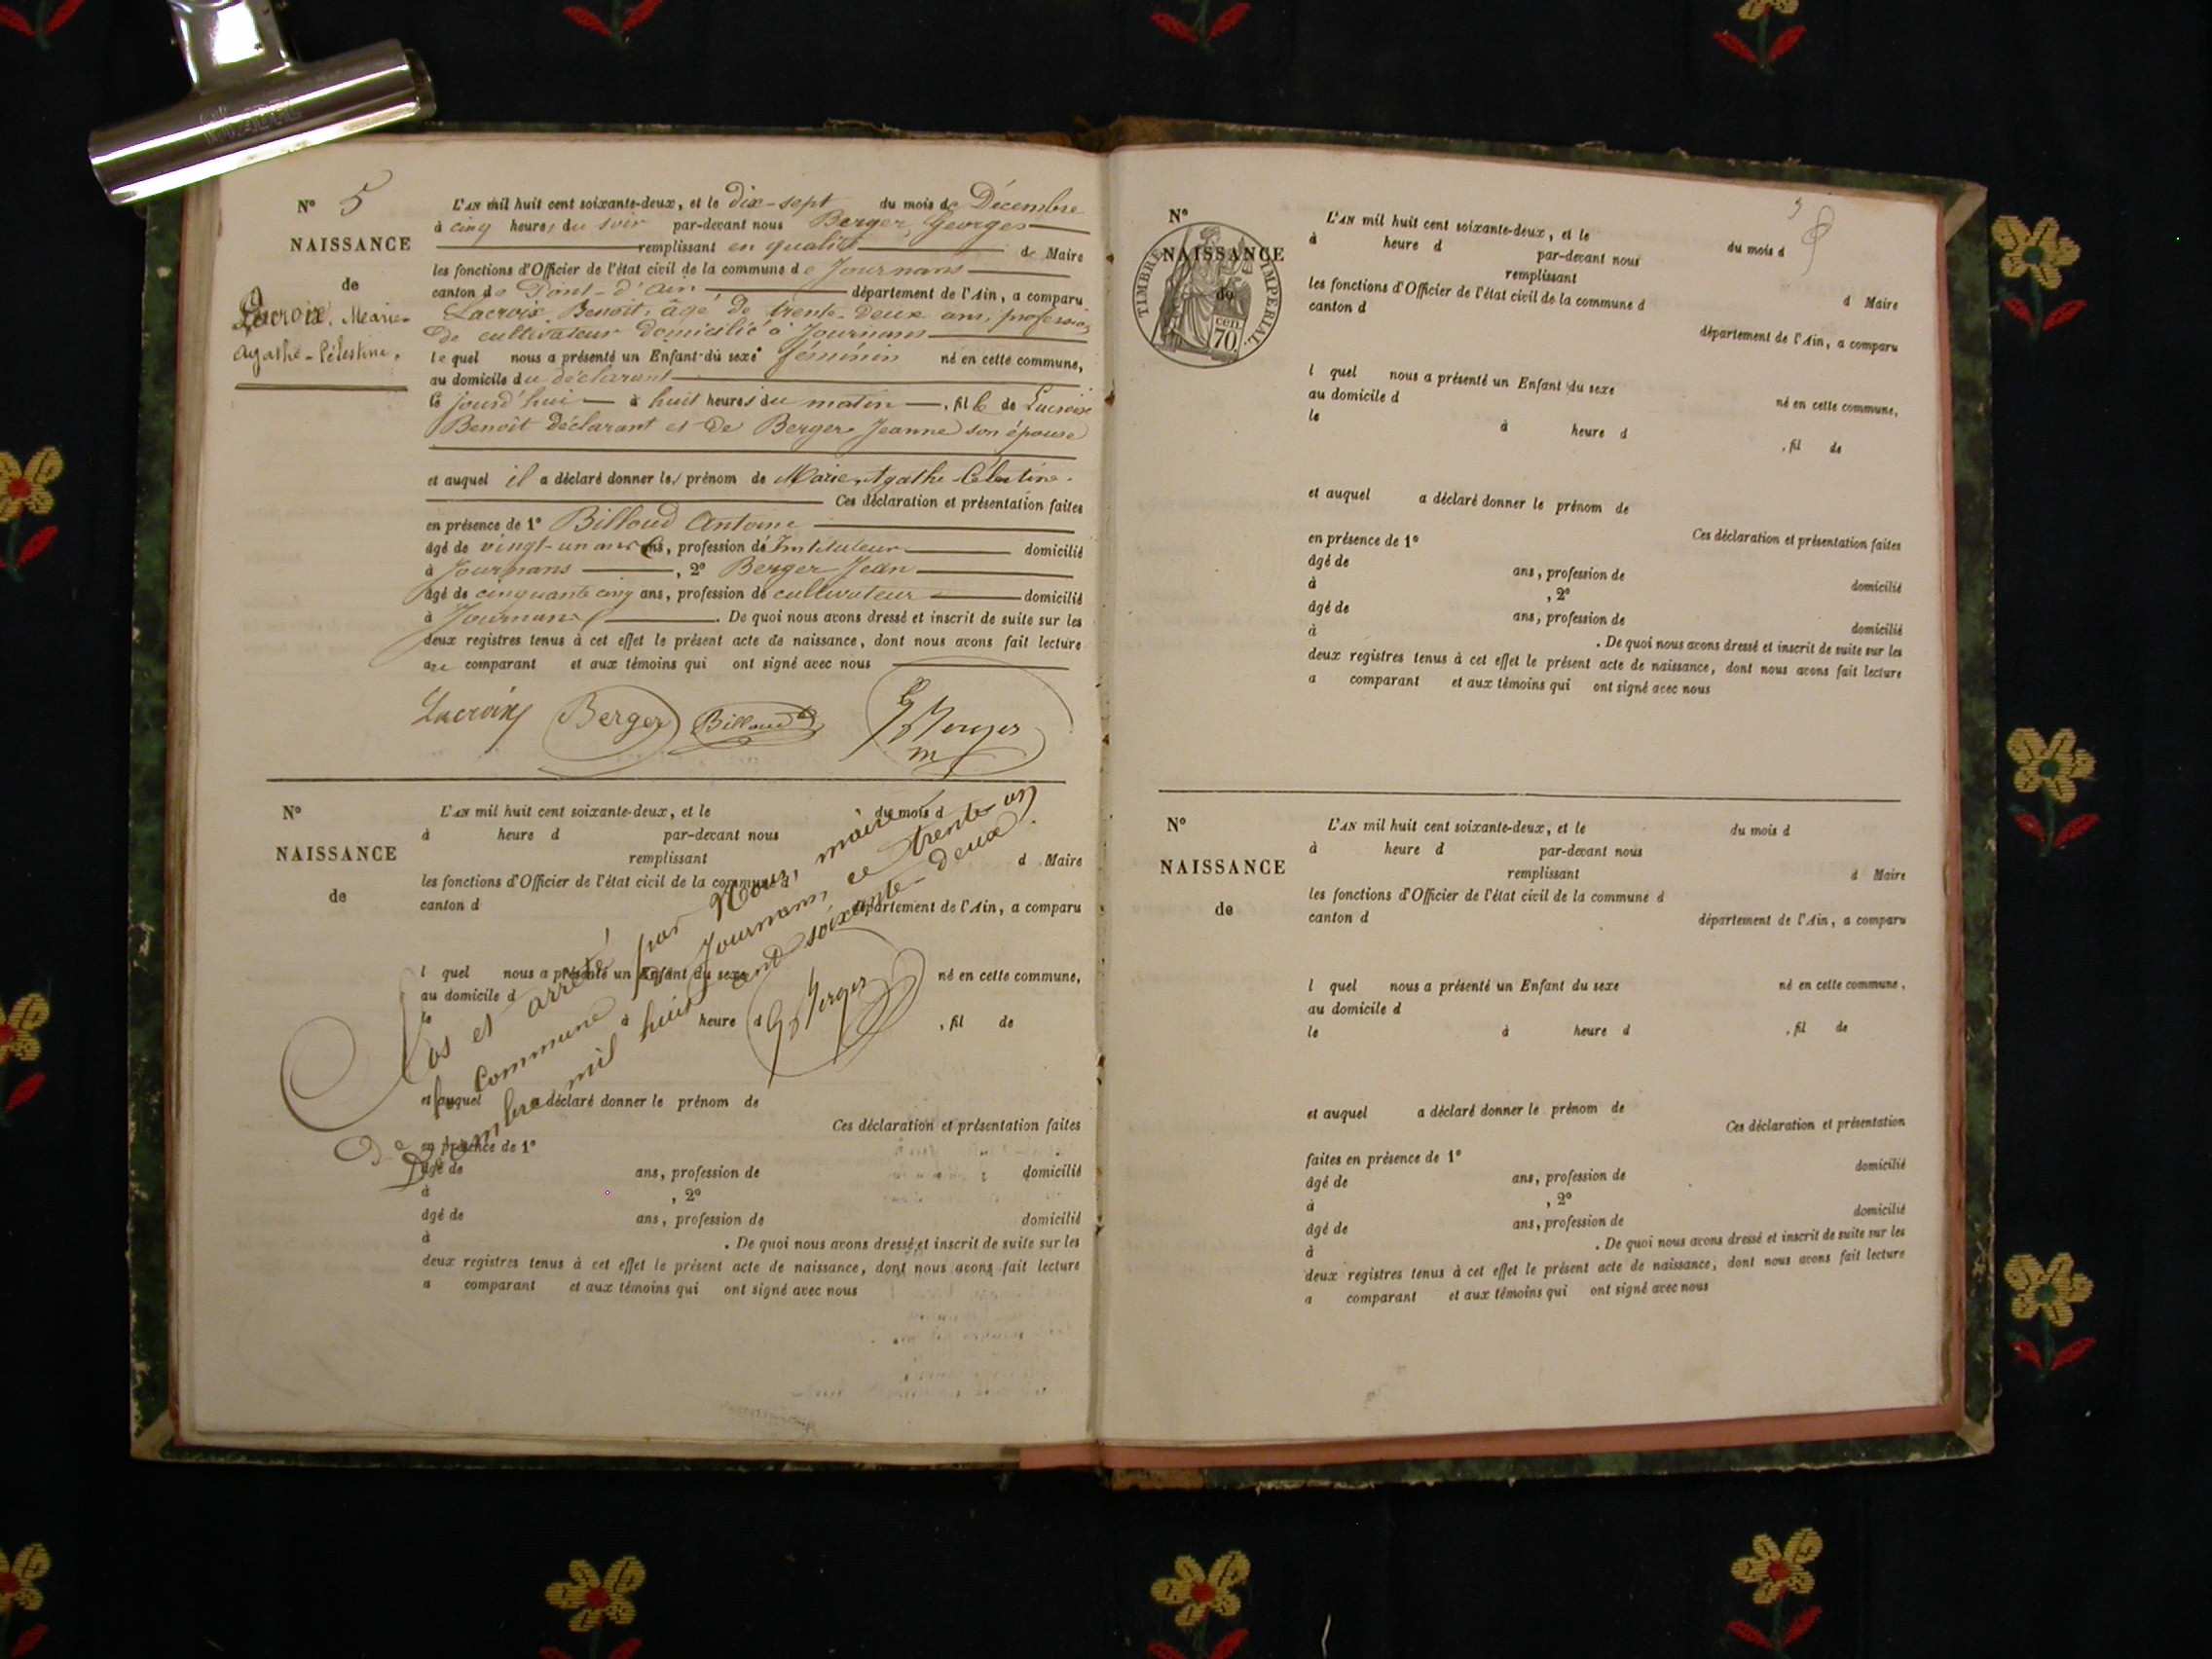 N° 5
NAISSANCE
de
Lacroix, Marie-
Agathe-Célestine.
L'AN mil huit cent soixante-deux, et le dix-sept du mois de Décembre
à cinq heures du soir par-devant nous Berger, Georges
remplissant en qualité de Maire
les fonctions d'Officier de l'état civil de la commune de Journans
canton de Pont-d'Ain département de l'Ain, a comparu
Lacroix Benoit, âgé de trente-deux ans, profession
de cultivateur domicilié à Journans
lequel nous a présenté un Enfant du sexe féminin né en cette commune,
au domicile du déclarant
le jourd'hui à huit heures du matin, fille de Lacroix
Benoît déclarant et de Berger Jeanne son épouse
et auquel il a déclaré donner les prénom de Marie Agathe Célestine.
Ces déclaration et présentation faites
en présence de 1° Billoud Antoine
âgé de vingt-un ans ans, profession de Instituteur domicilié
à Journans, 2° Berger Jean
âgé de cinquante cinq ans, profession de cultivateur domicilié
à Journans. De quoi nous avons dressé et inscrit de suite sur les
deux registres tenus à cet effet le présent acte de naissance, dont nous avons fait lecture
au comparant et aux témoins qui ont signé avec nous
Lacroix Berger Billoud G Berger
m
N°
NAISSANCE
de
L'AN mil huit cent soixante-deux, et le du mois d
à heure d par-devant nous
remplissant d Maire
les fonctions d'Officier de l'état civil de la commune d
canton d département de l'Ain, a comparu
l quel nous a présenté un Enfant du sexe né en cette commune,
au domicile d
le à heure d , fil de
et auquel a déclaré donner le prénom de
Ces déclaration et présentation faites
en présence de 1°
âgé de ans, profession de domicilié
à , 2°
âgé de ans, profession de domicilié
à . De quoi nous avons dressé et inscrit de suite sur les
deux registres tenus à cet effet le présent acte de naissance, dont nous avons fait lecture
a comparant et aux témoins qui ont signé avec nous
Clos et arrêté par Nous, maire
de la Commune de Journans, ce trente un
Décembre mil huit cent soixante-deux.
G Berger
N°
NAISSANCE
de
TIMBRE IMPERIAL
cen.
70.
L'AN mil huit cent soixante-deux, et le du mois d
à heure d par-devant nous
remplissant d Maire
les fonctions d'Officier de l'état civil de la commune d
canton d département de l'Ain, a comparu
l quel nous a présenté un Enfant du sexe né en cette commune,
au domicile d
le à heure d , fil de
et auquel a déclaré donner le prénom de
Ces déclaration et présentation faites
en présence de 1°
âgé de ans, profession de domicilié
à , 2°
âgé de ans, profession de domicilié
à . De quoi nous avons dressé et inscrit de suite sur les
deux registres tenus à cet effet le présent acte de naissance, dont nous avons fait lecture
a comparant et aux témoins qui ont signé avec nous
N°
NAISSANCE
de
L'AN mil huit cent soixante-deux, et le du mois d
à heure d par-devant nous
remplissant d Maire
les fonctions d'Officier de l'état civil de la commune d
canton d département de l'Ain, a comparu
l quel nous a présenté un Enfant du sexe né en cette commune,
au domicile d
le à heure d , fil de
et auquel a déclaré donner le prénom de
Ces déclaration et présentation
faites en présence de 1°
âgé de ans, profession de domicilié
à , 2°
âgé de ans, profession de domicilié
à . De quoi nous avons dressé et inscrit de suite sur les
deux registres tenus à cet effet le présent acte de naissance, dont nous avons fait lecture
a comparant et aux témoins qui ont signé avec nous